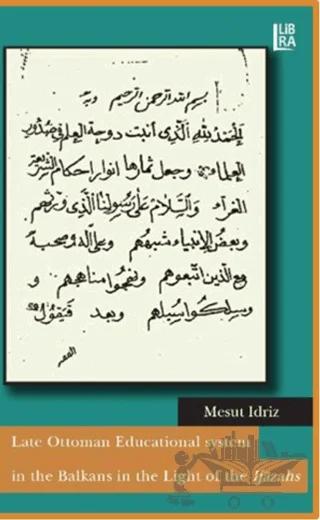 LiB
RA
بسم الله الرحمن الرحيم وبه
الحمد لله الذي انبت دوحة العلم في صدور
العلماء وجعل ثمارها انوار احكام الشريعة
الغراء والسلام على رسولنا الذي ورثهم
وبعض الانبياء شبههم وعلى آله وصحبه
مع الذين اتبعوهم ونهجوا مناهجهم و
وسلكوا سبلهم وبعد فيقول
الفقير
Mesut Idriz
Late Ottoman Educational system
in the Balkans in the Light of the Ijāzahs